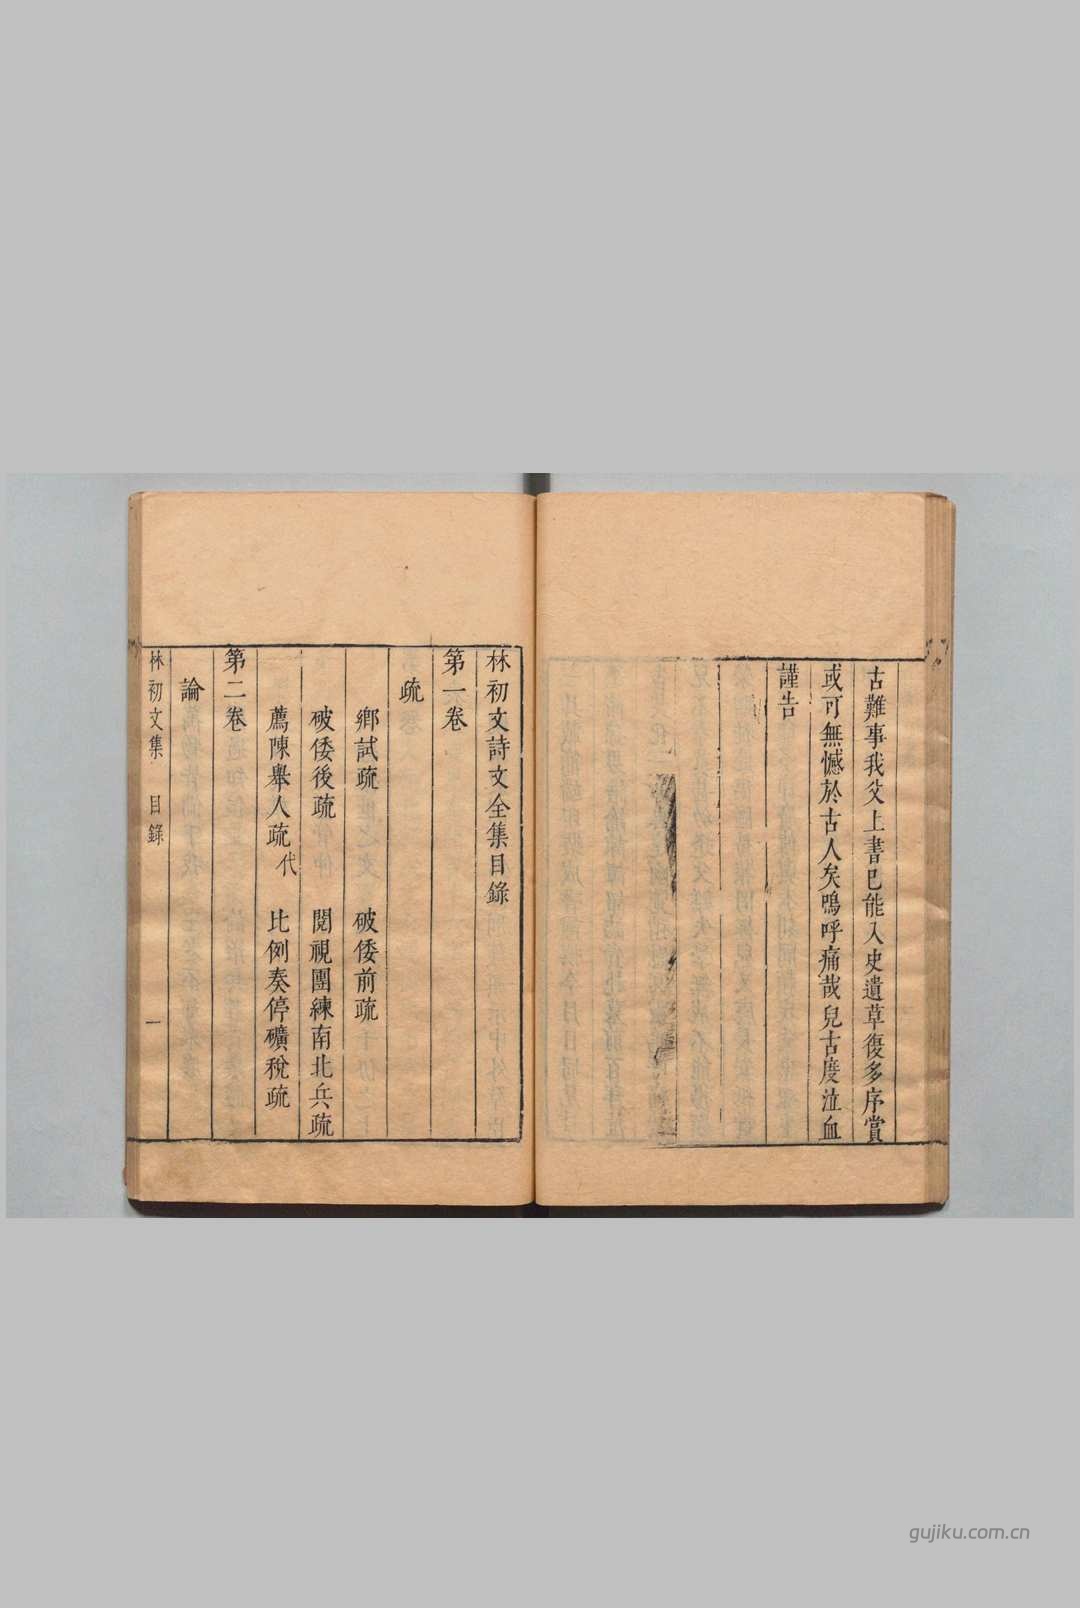 古難事我父上書已能入史遺草復多序賞
或可無憾於古人矣嗚呼痛哉兒古度泣血
謹告
林初文詩文全集目錄
第一卷
疏
鄉試疏 破倭前疏
破倭後疏 閱視團練南北兵疏
薦陳舉人疏代 比例奏停礦稅疏
第二卷
論
林初文集 目錄 一
gujiku.com.cn